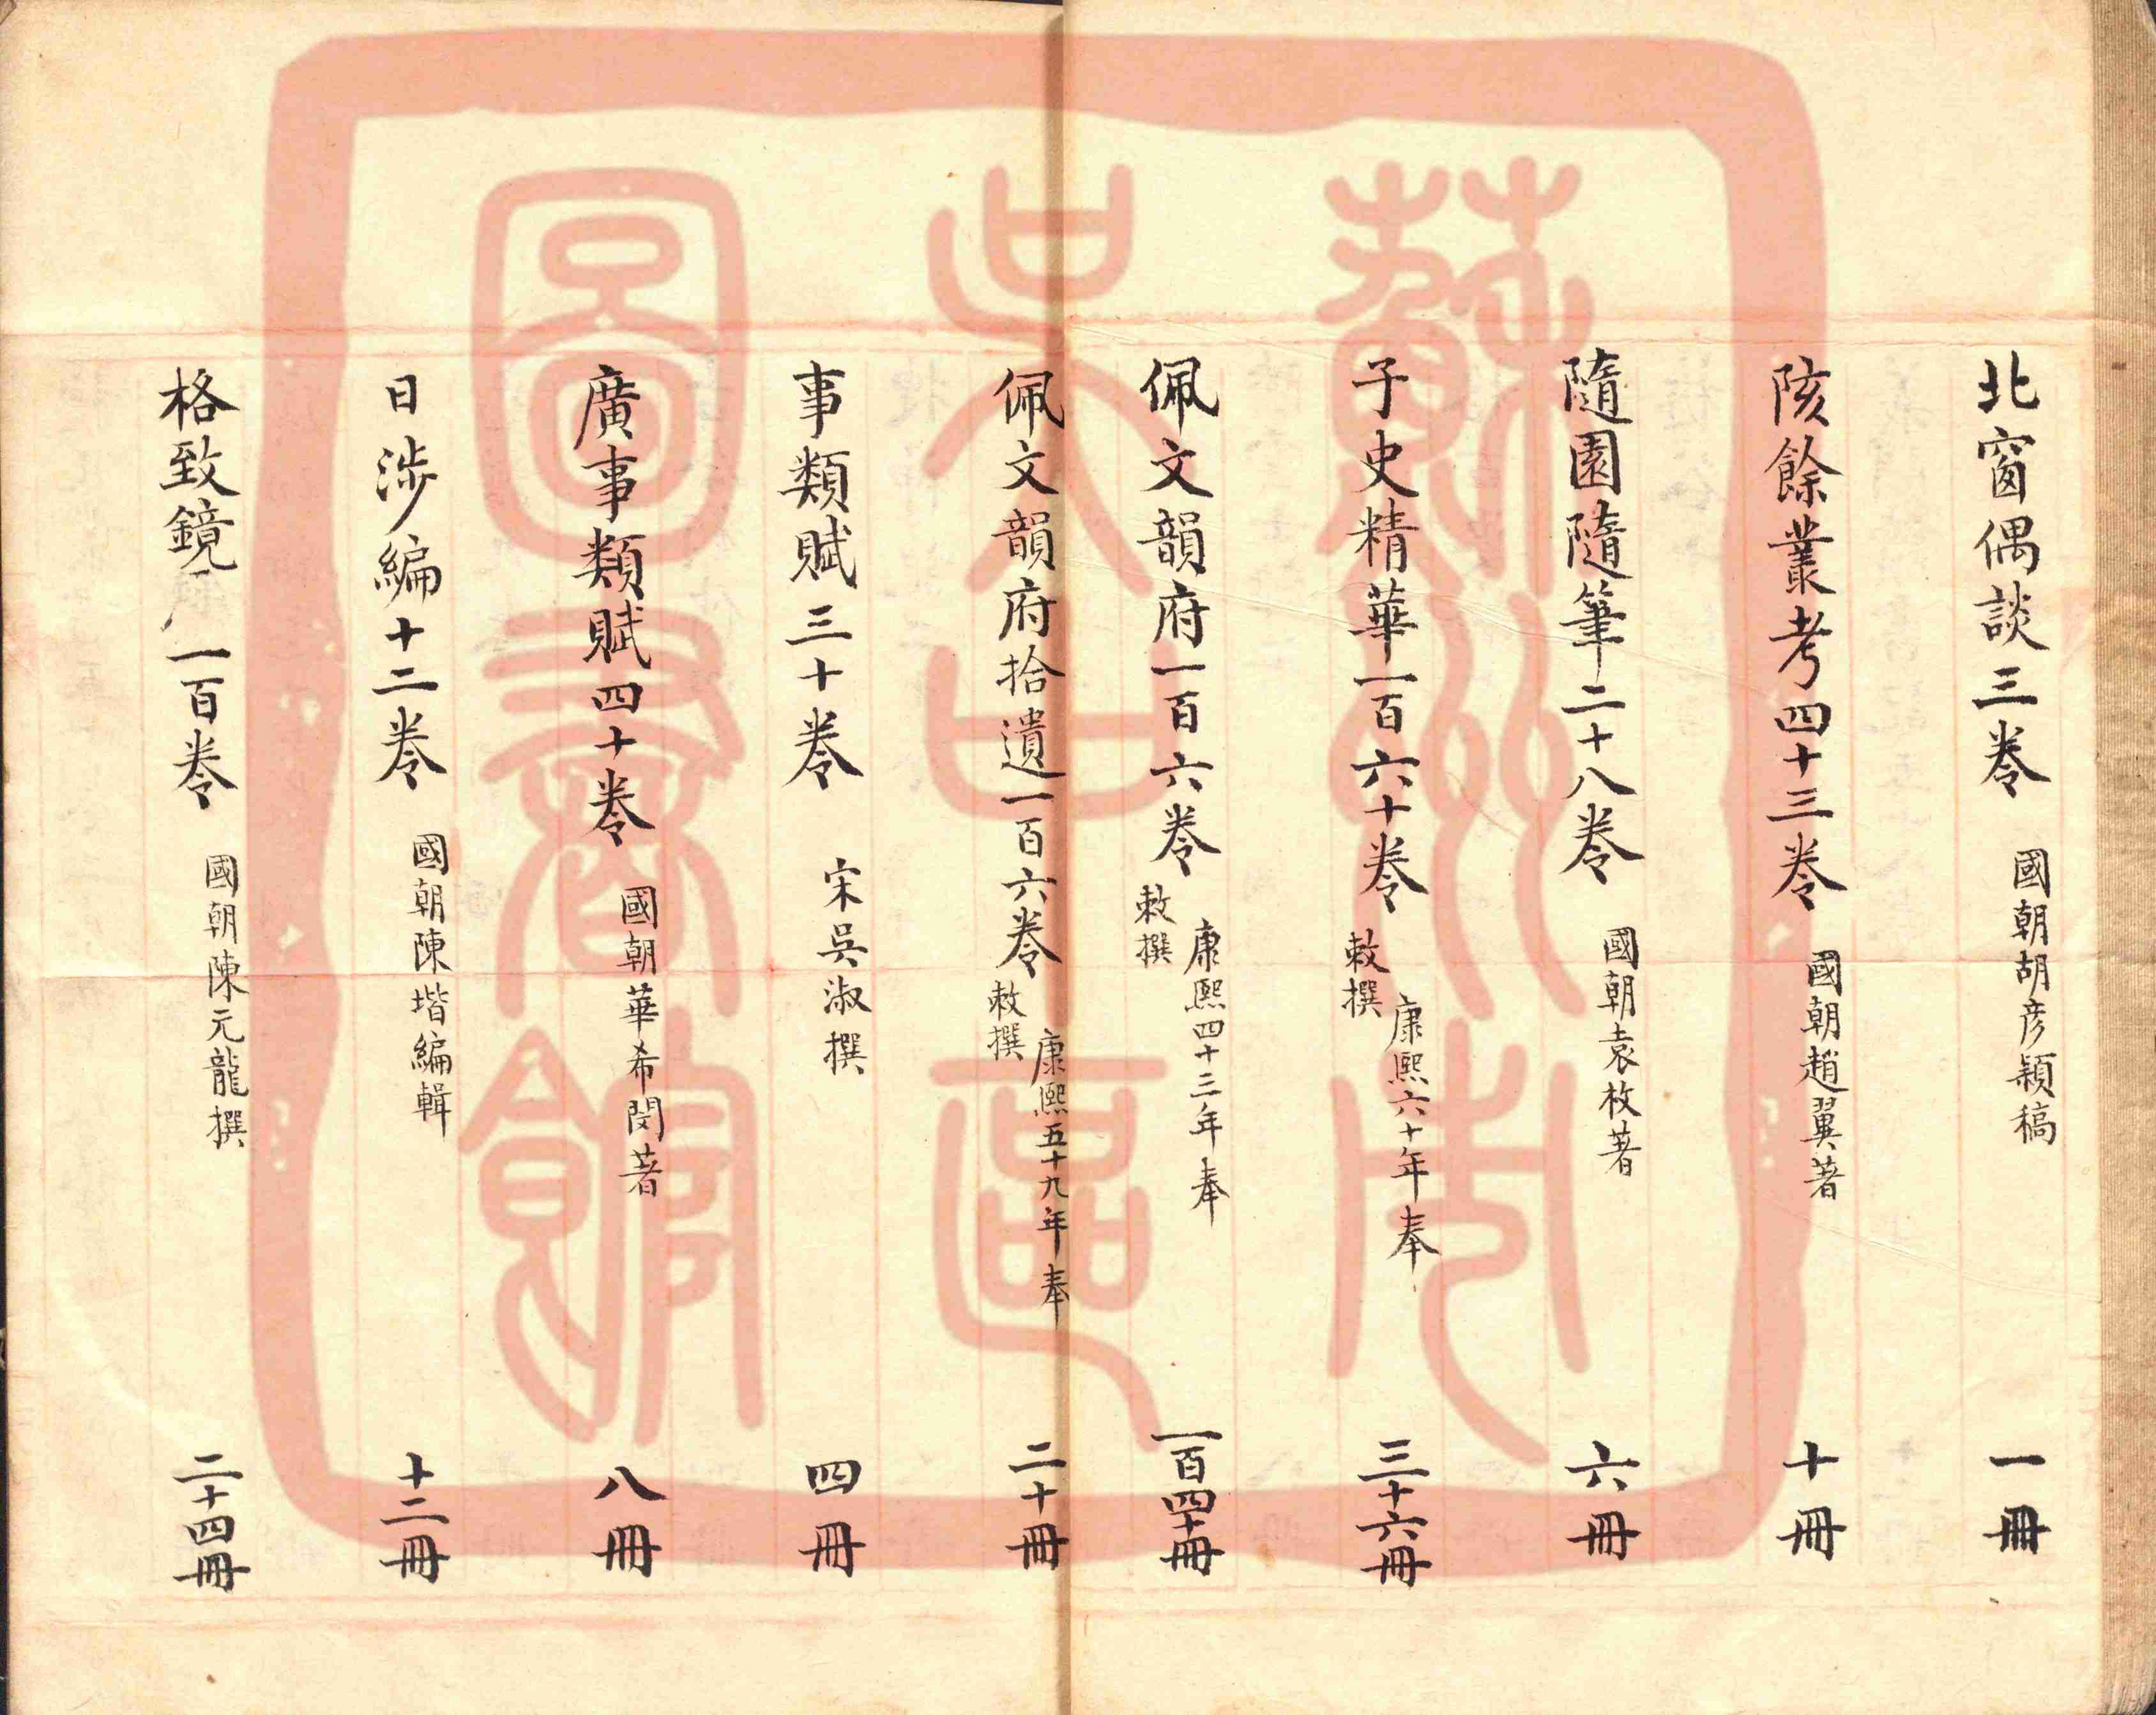 北窗偶談三卷 國朝胡彦穎稿 一冊
陔餘叢考四十三卷 國朝趙翼著 十冊
隨園隨筆二十八卷 國朝袁枚著 六冊
子史精華一百六十卷 康熙六十年奉 三十六冊
敕撰
佩文韻府一百六卷 康熙四十三年奉 一百四十冊
敕撰
佩文韻府拾遺一百六卷 康熙五十九年奉 二十冊
敕撰
事類賦三十卷 宋吳淑撰 四冊
廣事類賦四十卷 國朝華希閔著 八冊
日涉編十二卷 國朝陳堦編輯 十二冊
格致鏡 一百卷 國朝陳元龍撰 二十四冊
蘇州市
吳中區
圖書館